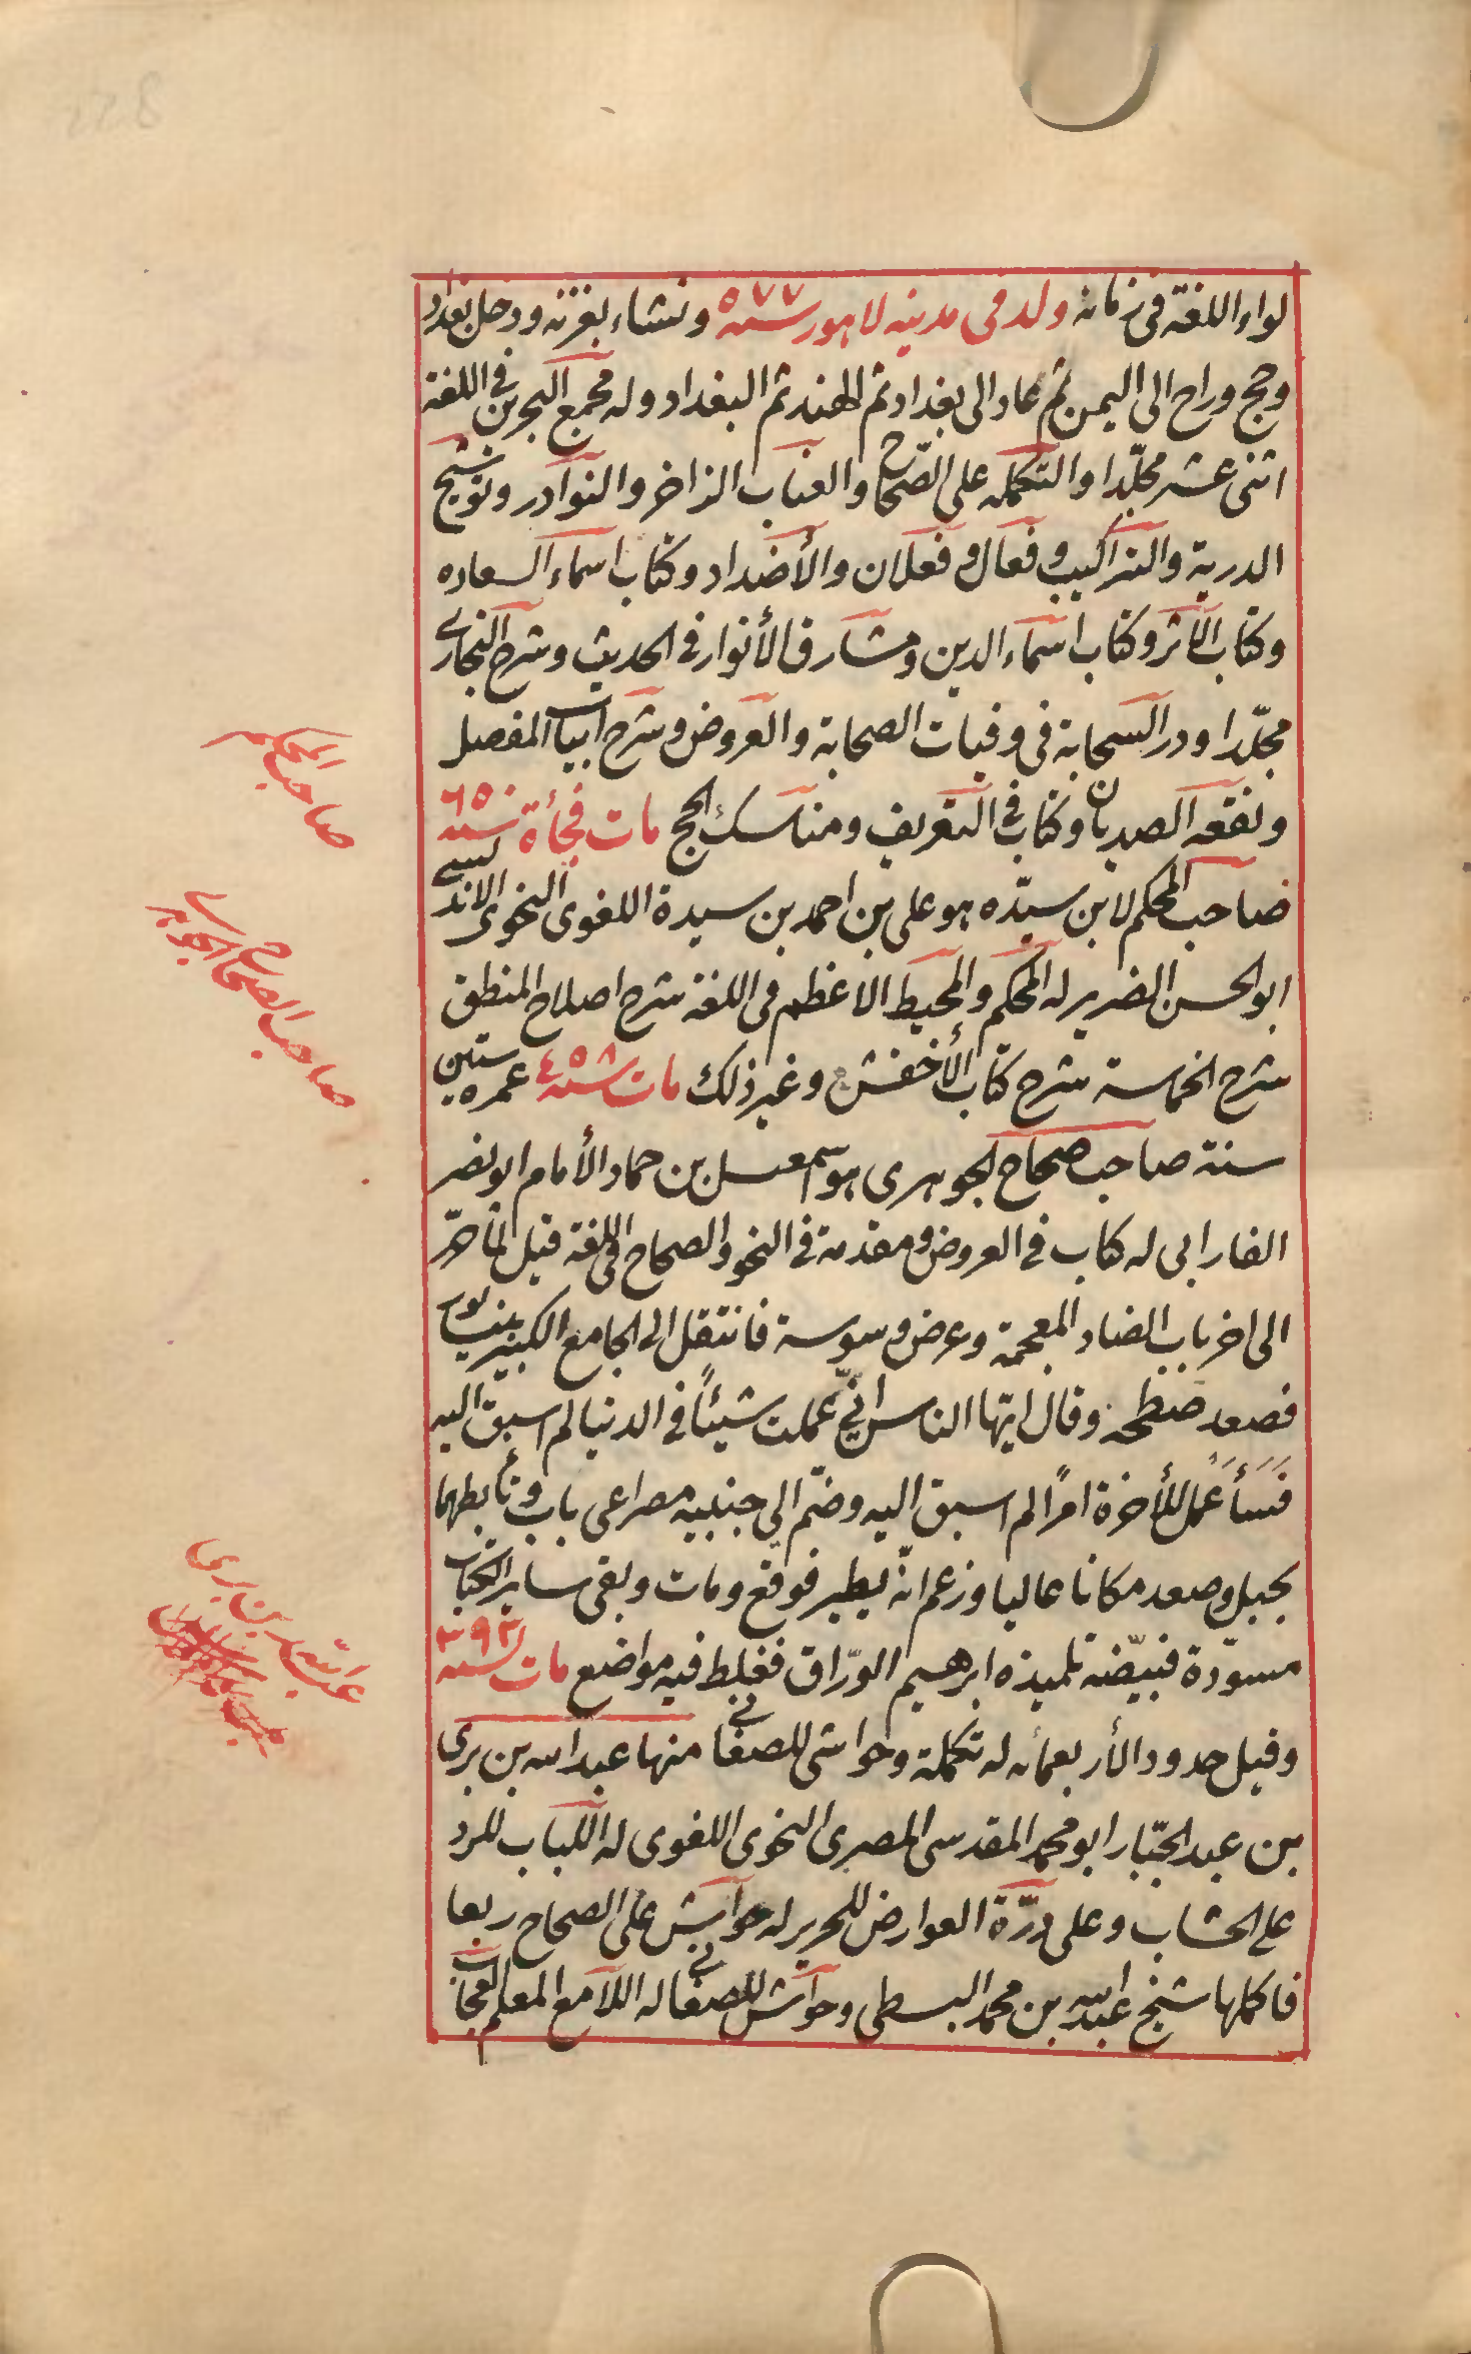 لواء اللغة فى زمانه ولد فى مدينه لاهور سنه ٥٧٧ ونشاء بغزنه ودخل بغداد
وحج وراح الى اليمن ثم عاد الى بغداد ثم الهند ثم البغداد وله مجمع البحرين فى اللغة
اثنى عشر مجلّدا والتكمله على الصّحاح والعباب الزاخر والنوادر وتوشيح
الدرية والتراكيب وفعال وفعلان والأضداد وكتاب اسماء السعاده
وكتاب الأثر وكتاب اسماء الدين ومشارق الأنوار فى الحديث وشرح البخارى
مجلّدا ودر السحابة فى وفيات الصحابة والعروض وشرح ابيات المفصل
ونفعه الصديان وكتاب فى التعريف ومناسك الحج مات فجأة سنه ٦٥٠
صاحب المحكم لابن سيدّه هو على بن احمد بن سيدة اللغوى النحوى الاندلسى
ابو الحسن الضرير له المحكم والمحيط الاعظم فى اللغة شرح اصلاح المنطق
شرح الحماسة شرح كتاب الأخفش وغير ذلك مات سنه ٤٥٨ عمره ستين
سنة صاحب صحاح الجوهرى هو اسمعيل بن حماد الأمام ابو نصر
الفارابى له كتاب فى العروض ومقدمة فى النحو والصحاح فى اللغة قيل
الى اخر باب الضاد المعجمة وعرض وسوسة فانتقل الى الجامع الكبير بنيسابور
فصعد سطحه وقال ايّها الناس انّى عملت شيئاً فى الدنيا لم اسبق اليه
فسأعمل للأخرة امراً لم اسبق اليه وضمّ الى جنبيه مصراعى باب وتأبطهما
بحبل وصعد مكانا عاليا وزعم انّه يطير فوقع ومات وبقى سائر الكتاب
مسوّدة فبيّضه تلميذه ابرهيم الورّاق فغلط فيه مواضع مات سنه ٣٩٣
وقيل حدود الأربعمائه له تكملة وحواشى للصغانى منها عبد الله بن برى
بن عبد الجبّار ابو محمد المقدسى المصرى النحوى اللغوى له اللباب للرد
على الخشاب وعلى درّة العوارض للحرير له حواش على الصحاح ربعا
فاكملها شيخ عبد الله بن محمد البسطى وحواش للصغانى له اللامع المعلم العجاب
صاحب المحكم
صاحب الصحاح الجوهرى
عبد الله بن برى